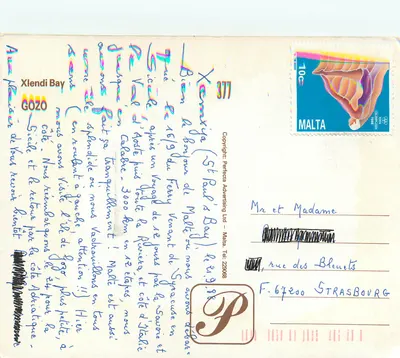 Xlendi Bay
GOZO
377
Copyright: Perfecta Advertising Ltd Malta. Tel:
10c
MALTA
Xemxija (St Paul's Bay), le 21.9.88
Bien le bonjour de Malte où nous avons débar-
qué le 16/9 du Ferry venant de Syracuse en
Sicile, après un voyage de 12 jours par la Savoie et
le Val d'Aoste puis toute la Riviera et côte d'Italie
jusqu'en Calabre. 3000 km en 12 étapes, nous
avons fait ça tranquillement! Malte est aussi
une île splendide où nous vadrouillons en tous
sens (en roulant à gauche, attention!!) Hier
nous avons visité l'île de Gozo plus petite, à
côté. Nous rembarquons le 24 pour la
Sicile et le retour par la côte Adriatique.
Au plaisir de vous revoir bientôt
Mr et Madame
, rue des Bleuets
F. 67200 STRASBOURG
P